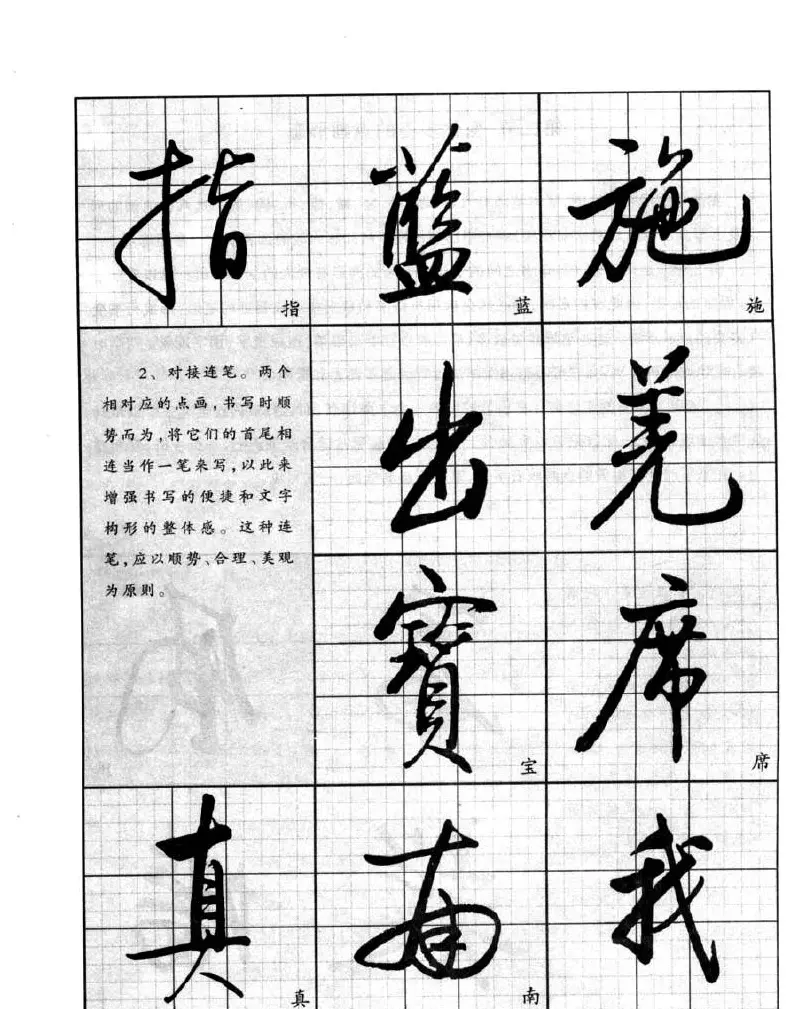 指 藍 施
指 蓝 施
2、对接连笔。两个
相对应的点画,书写时顺
势而为,将它们的首尾相
连当作一笔来写,以此来
增强书写的便捷和文字
构形的整体感。这种连
笔,应以顺势、合理、美观
为原则。
出 羌
寶 席
宝 席
真 南 我
真 南